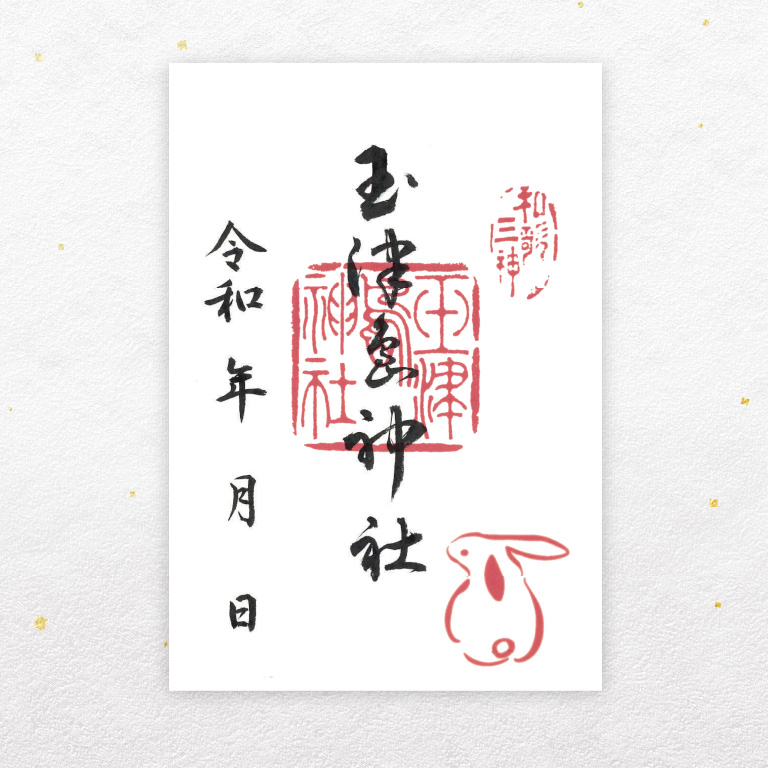 和歌
三神
玉津島神社
玉津
島
神社
令和 年 月 日